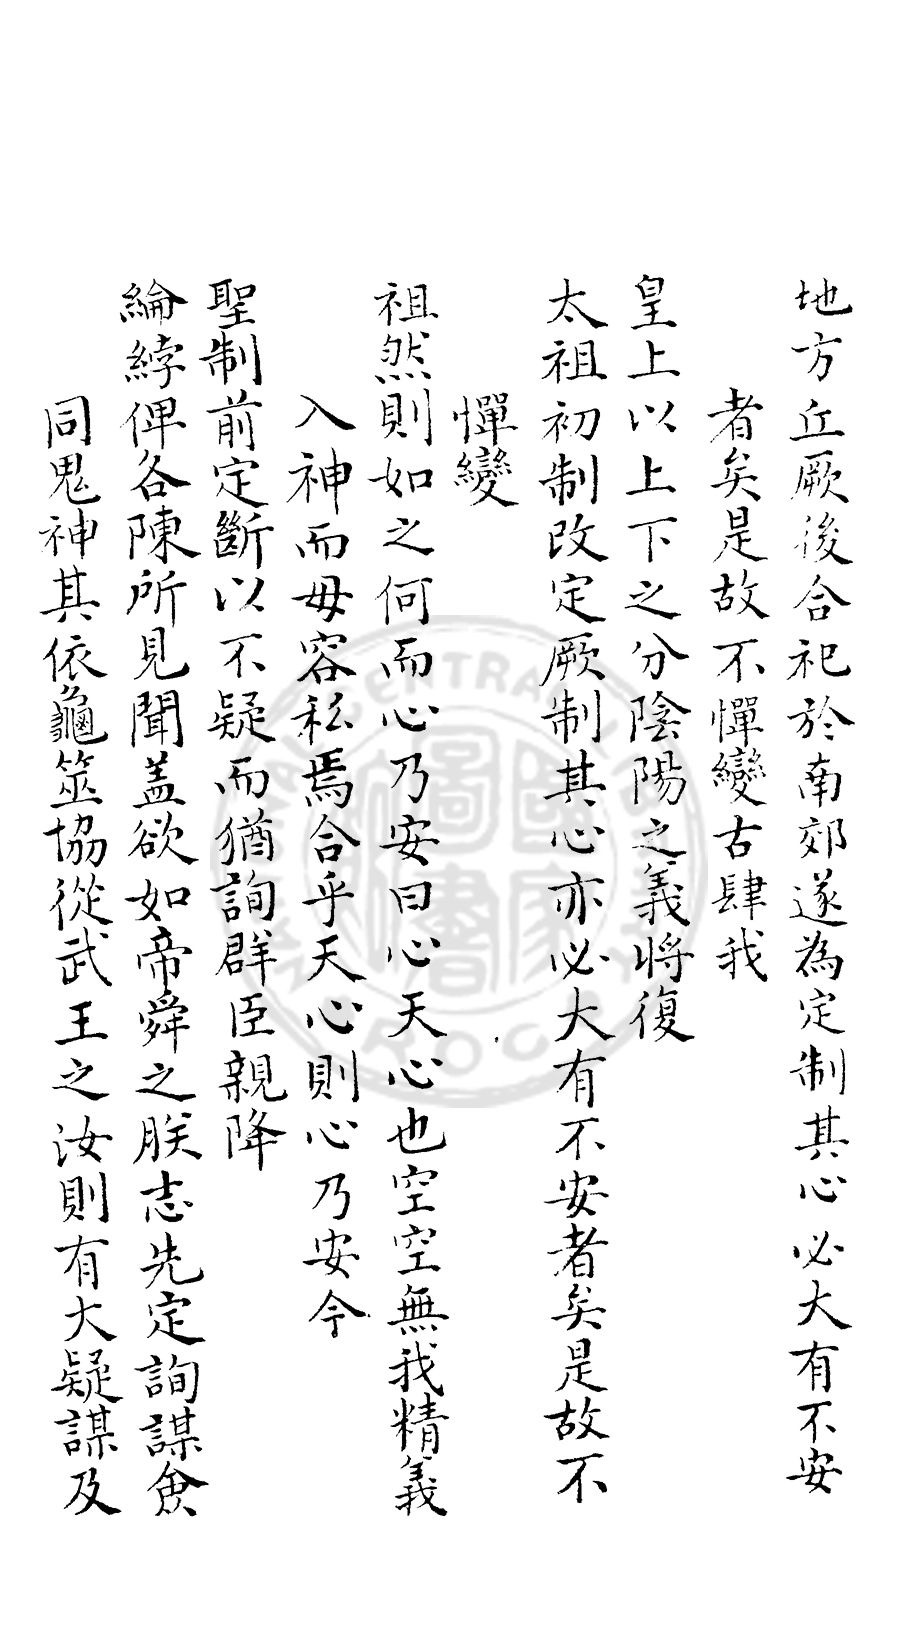 地方丘厥後合祀於南郊遂為定制其心必大有不安
者矣是故不憚變古肆我
皇上以上下之分陰陽之義將復
太祖初制改定厥制其心亦必大有不安者矣是故不
憚變
祖然則如之何而心乃安曰心天心也空空無我精義
入神而毋容私焉合乎天心則心乃安今
聖制前定斷以不疑而猶詢群臣親降
綸綍俾各陳所見聞蓋欲如帝舜之朕志先定詢謀僉
同鬼神其依龜筮協從武王之汝則有大疑謀及